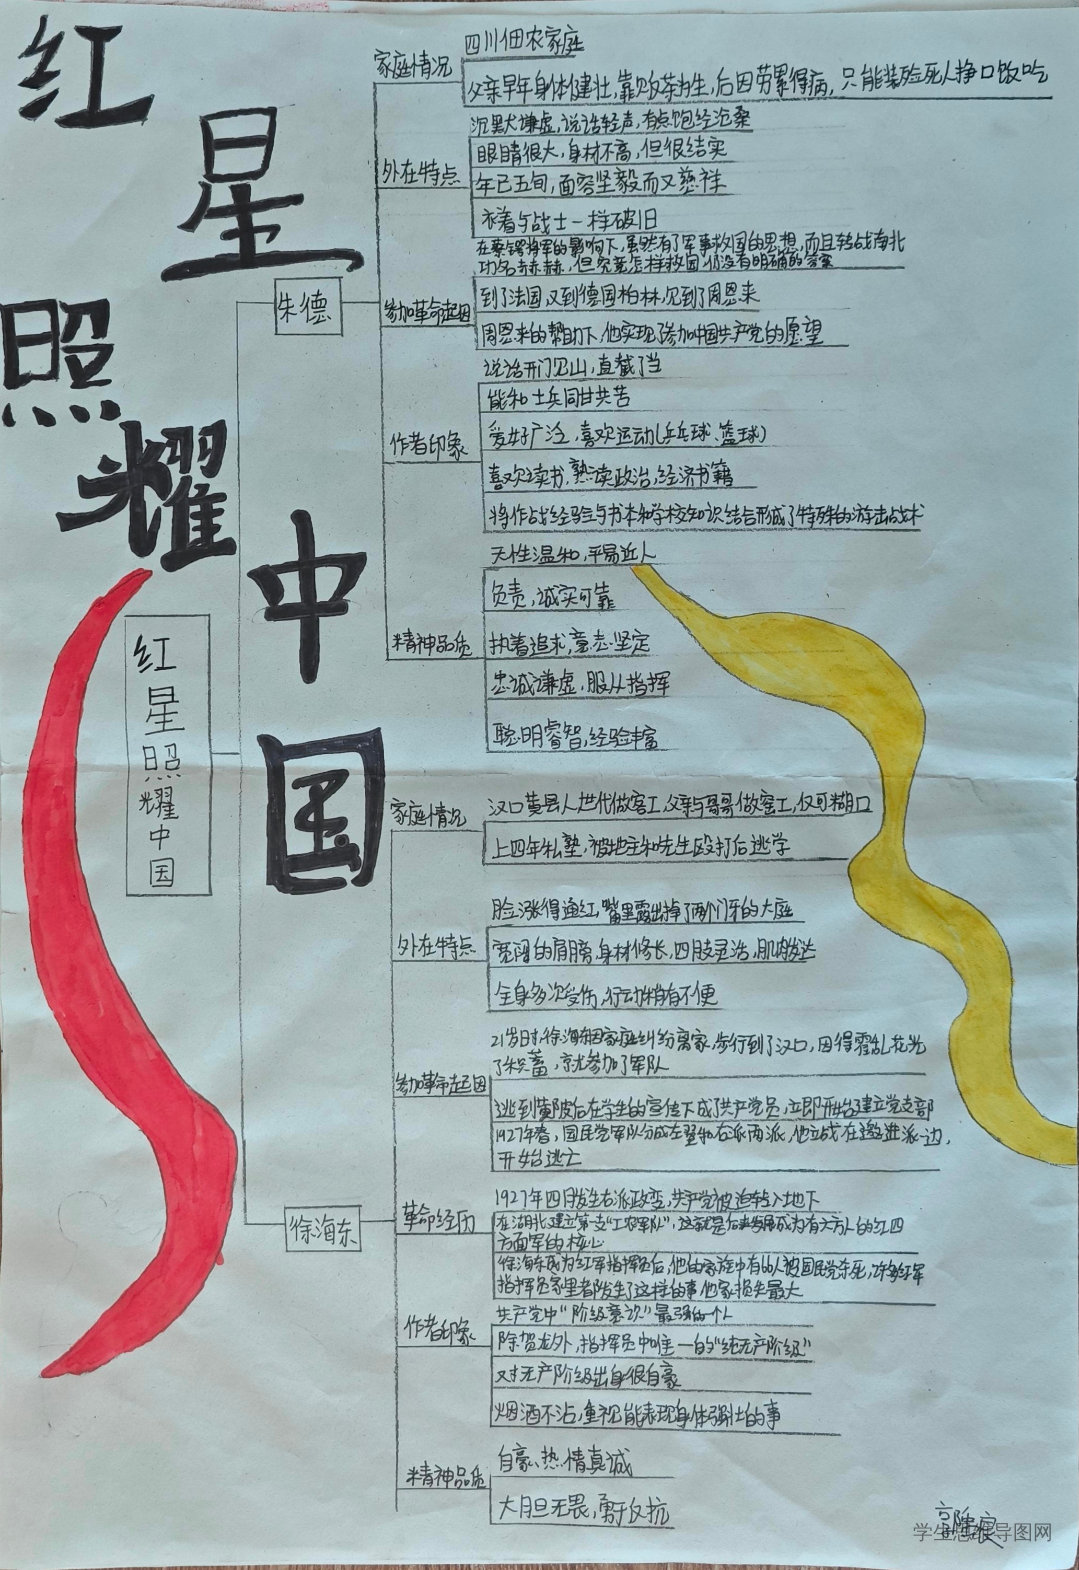 红
星
照
耀
中
国
红
星
照
耀
中
国
朱德
家庭情况
四川佃农家庭
父亲早年身体健壮,靠贩茶为生,后因劳累得病,只能装殓死人挣口饭吃
外在特点
沉默大谦虚,说话轻声,有点饱经沧桑
眼睛很大,身材不高,但很结实
年已五旬,面容坚毅而又慈祥
衣着与战士一样破旧
参加革命起因
在蔡锷将军的影响下,虽然有了军事救国的思想,而且转战南北
功名赫赫,但究竟怎样救国仍没有明确的答案
到了法国,又到德国柏林,见到了周恩来
周恩来的帮助下,他实现了参加中国共产党的愿望
作者印象
说话开门见山,直截了当
能和士兵同甘共苦
爱好广泛,喜欢运动(乒乓球、篮球)
喜欢读书,熟读政治,经济书籍
将作战经验与书本和学校知识结合形成了特殊的游击战术
精神品质
天性温和,平易近人
负责,诚实可靠
执着追求,意志坚定
忠诚谦虚,服从指挥
聪明睿智,经验丰富
徐海东
家庭情况
汉口黄县人世代做窑工,父亲与哥哥做窑工,仅可糊口
上四年私塾,被地主和先生殴打后逃学
外在特点
脸涨得通红,嘴里露出掉了两个门牙的大
宽阔的肩膀,身材修长,四肢灵活,肌肉发达
全身多次受伤,行动稍有不便
参加革命起因
21岁时,徐海东因家庭纠纷离家,步行到了汉口,因得霍乱花光
了积蓄,就参加了军队
逃到黄陂后在学生的宣传下成了共产党员,立即开始建立党支部
1927年春,国民党军队分成左翼和右派两派,他立战在激进派一边,
开始逃亡
革命经历
1927年四月发生右派政变,共产党被迫转入地下
在湖北建立第一支"工农军队",这就是后来发展成为有六万人的红四
方面军的核心
徐海东成为红军指挥员后,他的家族中有的人被国民党杀死,许多红军
指挥员家里都发生了这样的事他家损失最大
作者印象
共产党中"阶级意识"最强的一个人
除贺龙外,指挥员中唯一的"纯无产阶级"
对无产阶级出身很自豪
烟酒不沾,重视能表现身体强壮的事
精神品质
自豪、热情真诚
大胆无畏,勇于反抗
学生思维导图网